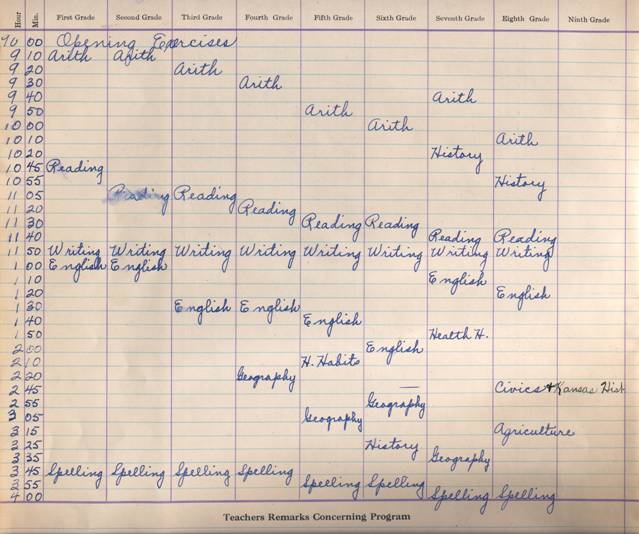 Hour Min. First Grade Second Grade Third Grade Fourth Grade Fifth Grade Sixth Grade Seventh Grade Eighth Grade Ninth Grade
00 Opening Exercises
9 10 Arith Arith
9 20 Arith
9 30 Arith
9 40 Arith
9 50 Arith
10 00 Arith
10 10 Arith
10 20 History
10 45 Reading
10 55 History
11 05 Reading Reading
11 20 Reading
11 30 Reading Reading
11 40 Reading Reading
11 50 Writing Writing Writing Writing Writing Writing Writing Writing
1 00 English English
1 10 English
1 20 English
1 30 English English
1 40 English
1 50 Health H.
2 00 English
2 10 H. Habits
2 20 Geography
2 45 Civics + Kansas Hist
2 55 Geography
3 05 Geography
3 15 Agriculture
3 25 History
3 35 Geography
3 45 Spelling Spelling Spelling Spelling
3 55 Spelling Spelling
4 00 Spelling Spelling
Teachers Remarks Concerning Program